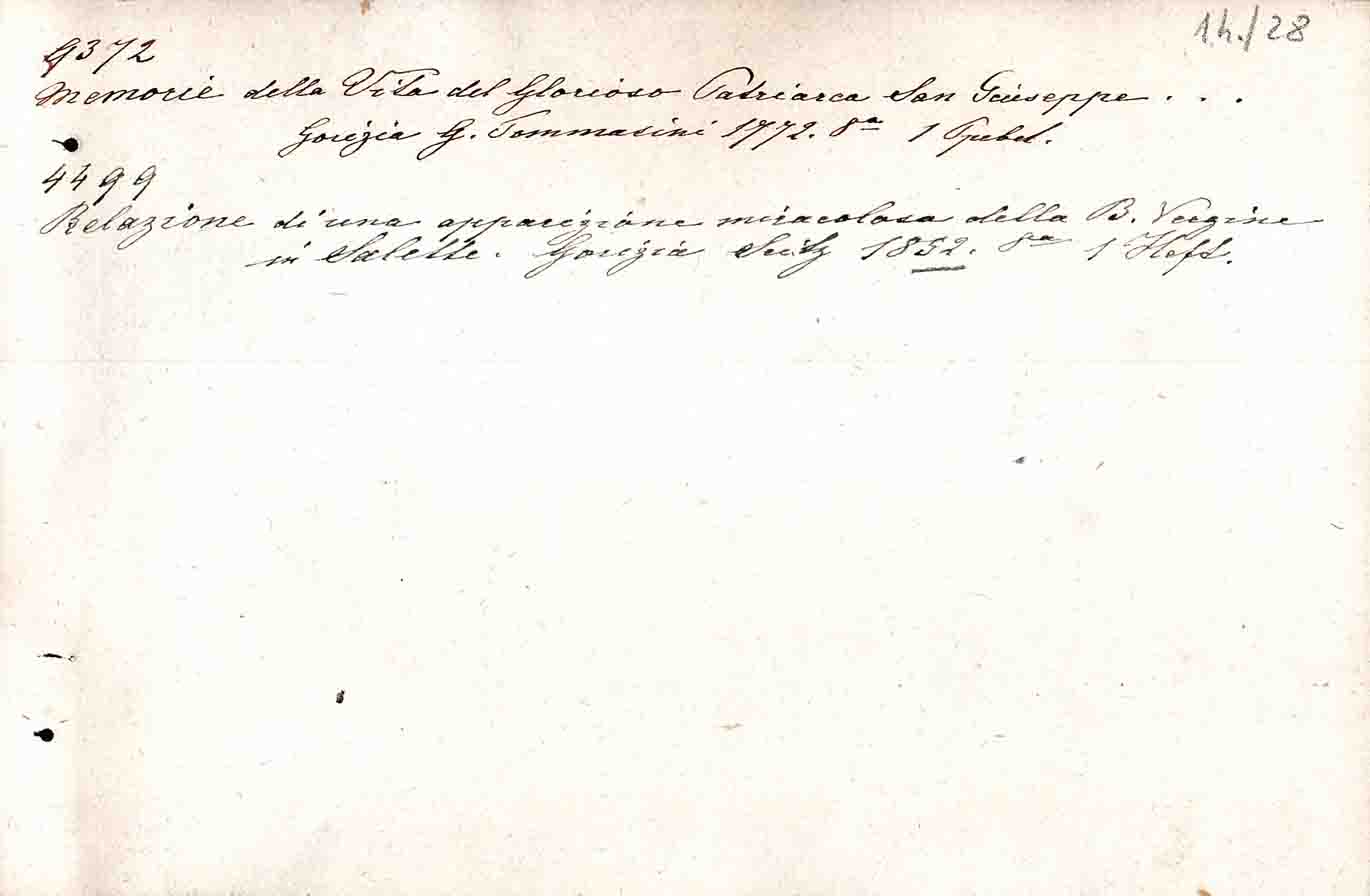 1.h./28
9372
Memorie della Vita del Glorioso Patriarca San Giuseppe . . .
Gorizia G. Tommasini 1772. 8ª 1
4499
Relazione di una apparizione miracolosa della B. Vergine
in Salette. Gorizia Seitz 1852. 8ª 1 Heft.